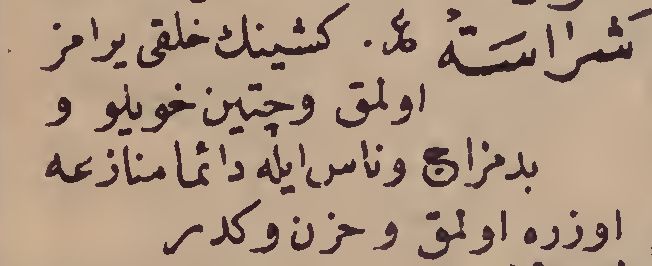 شَرَاسَتهُ عر. كشينك خلقى يرامز
اولمق وچتين خويلو و
بدمزاج وناس ايله دائما منازعه
اوزره اولمق و حزن وكدر